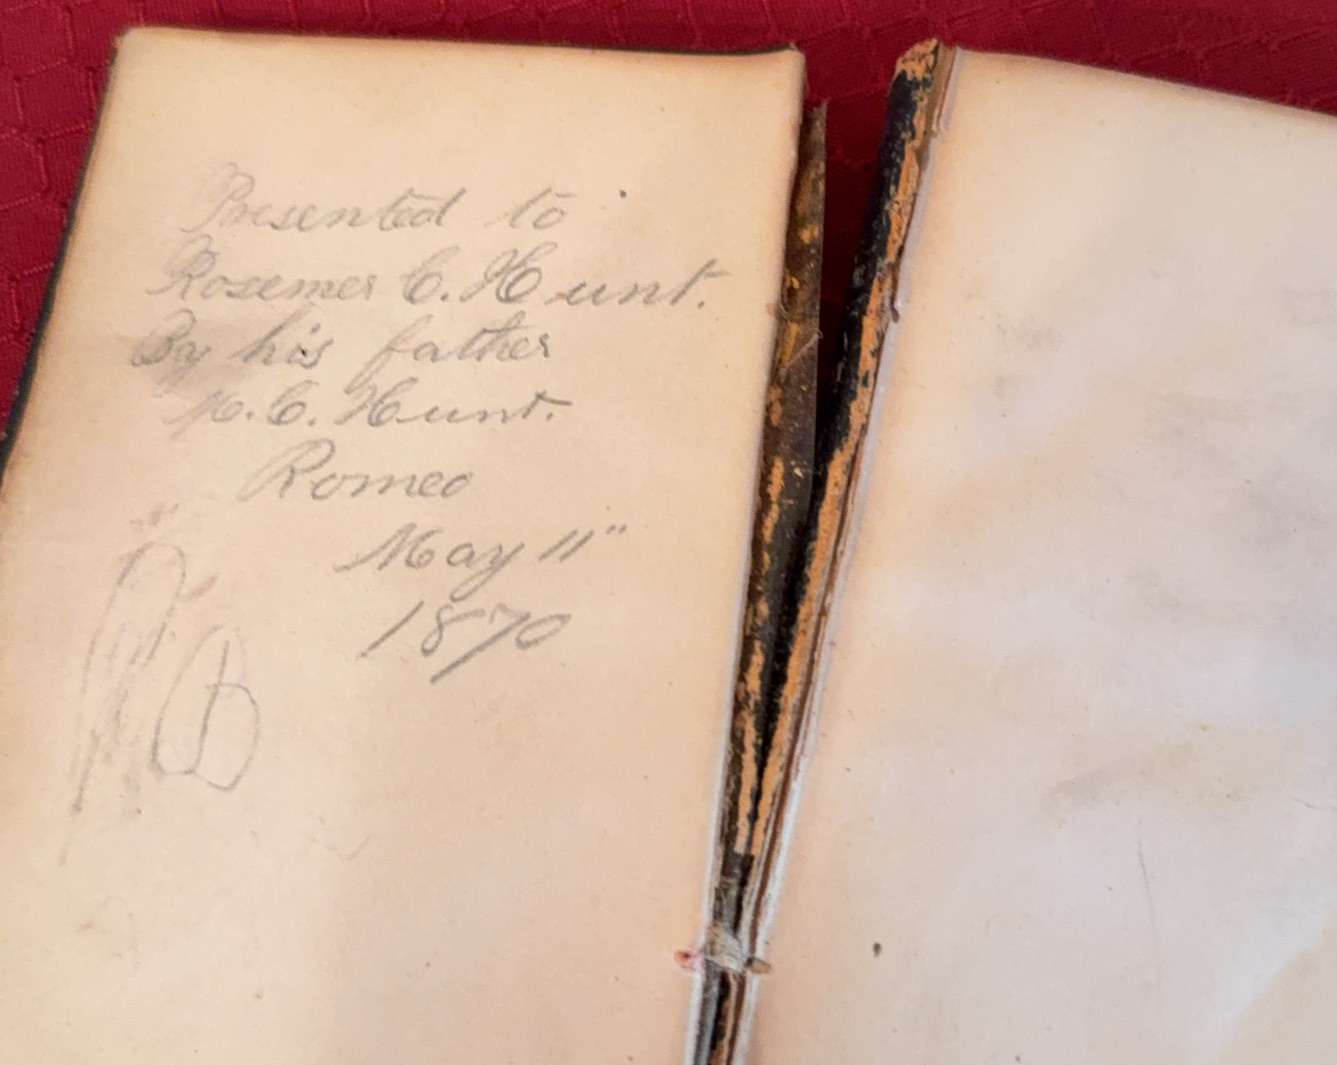 Presented to
Rosemer C. Hunt.
By his father
C. Hunt.
Romeo
May 11"
1870